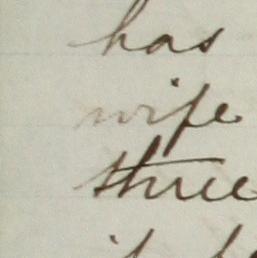 has
wife
three